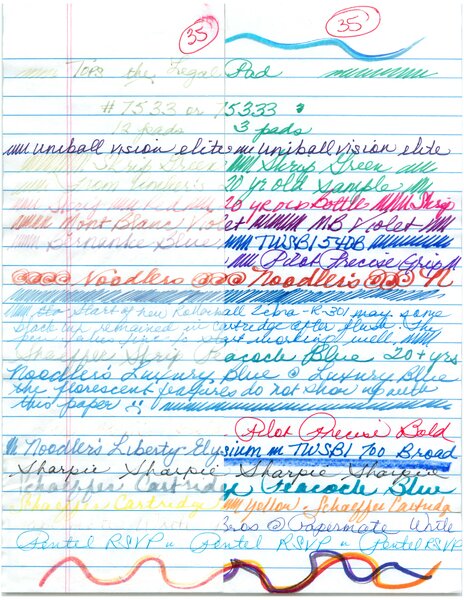 35 35
Tops the Legal Pad
#7533 or 75333
12 pads 3 pads
uniball vision elite uniball vision elite
Skrip Green
20 yr old sample
20 years Bottle Skrip
Mont Blanc Violet MB Violet
Bernanke Blue TWSBI 540B
Pilot Precise Grip
Noodlers Noodler's N
Start of new Rollerball Zebra-R-301 may some
black up remained in cartridge after flush. The
start working well.
Sheaffer Skrip Peacock Blue 20+yrs
Noodler's Luxury Blue @ Luxury Blue
the florescent features do not show up with
this paper :(
Pilot Precise Bold
Noodler's Liberty Elysium in TWSBI 700 Broad
Sharpie Sharpie Sharpie Sharpie
Schaeffer Cartridge Peacock Blue
Schaeffer Cartridge Yellow - Schaeffer Cartridge
@ Papermate Write
Pentel RSVP Pentel RSVP Pentel RSVP